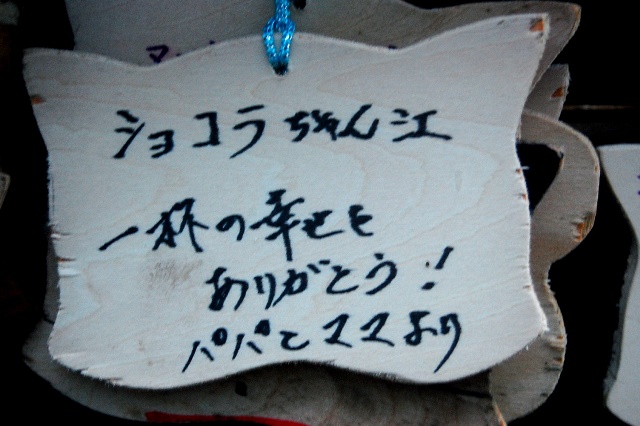 ショコラちゃん江
一杯の幸せを
ありがとう!
パパとママより